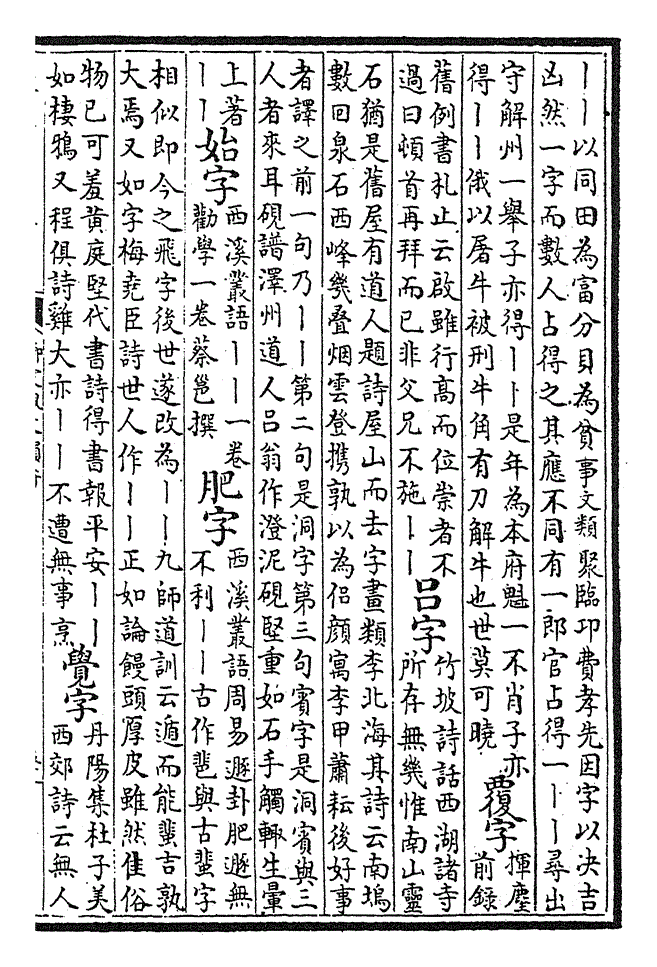 丨丨以同田為富分貝為貧事文類聚臨卭費孝先因字以决吉
凶然一字而數人占得之其應不同有一郎官占得一丨丨尋出
守解州一舉子亦得丨丨是年為本府魁一不肖子亦
得丨丨俄以屠牛被刑牛角有刀解牛也世莫可曉
覆字
揮麈
前錄
舊例書札止云啟雖行髙而位崇者不
過曰頓首再拜而已非父兄不施丨丨
吕字
竹坡詩話西湖諸寺
所存無幾惟南山靈
石猶是舊屋有道人題詩屋山而去字畫類李北海其詩云南塢
數回泉石西峰幾叠烟雲登携孰以為侶顔寓李甲蕭耘後好事
者譯之前一句乃丨丨第二句是洞字第三句賓字是洞賓與三
人者來耳硯譜澤州道人吕翁作澄泥硯堅重如石手觸輙生暈
上著
丨丨
始字
西溪叢語丨丨一卷
勸學一卷蔡邕撰
肥字
西溪叢語周易遯卦肥遯無
不利丨丨古作與古蜚字
相似即今之飛字後世遂改為丨丨九師道訓云遁而能蜚吉孰
大焉又如字梅堯臣詩世人作丨丨正如論饅頭厚皮雖然佳俗
物已可羞黄庭堅代書詩得書報平安丨丨
如棲鴉又程俱詩雞大亦丨丨不遭無事烹
覺字
丹陽集杜子美
西郊詩云無人